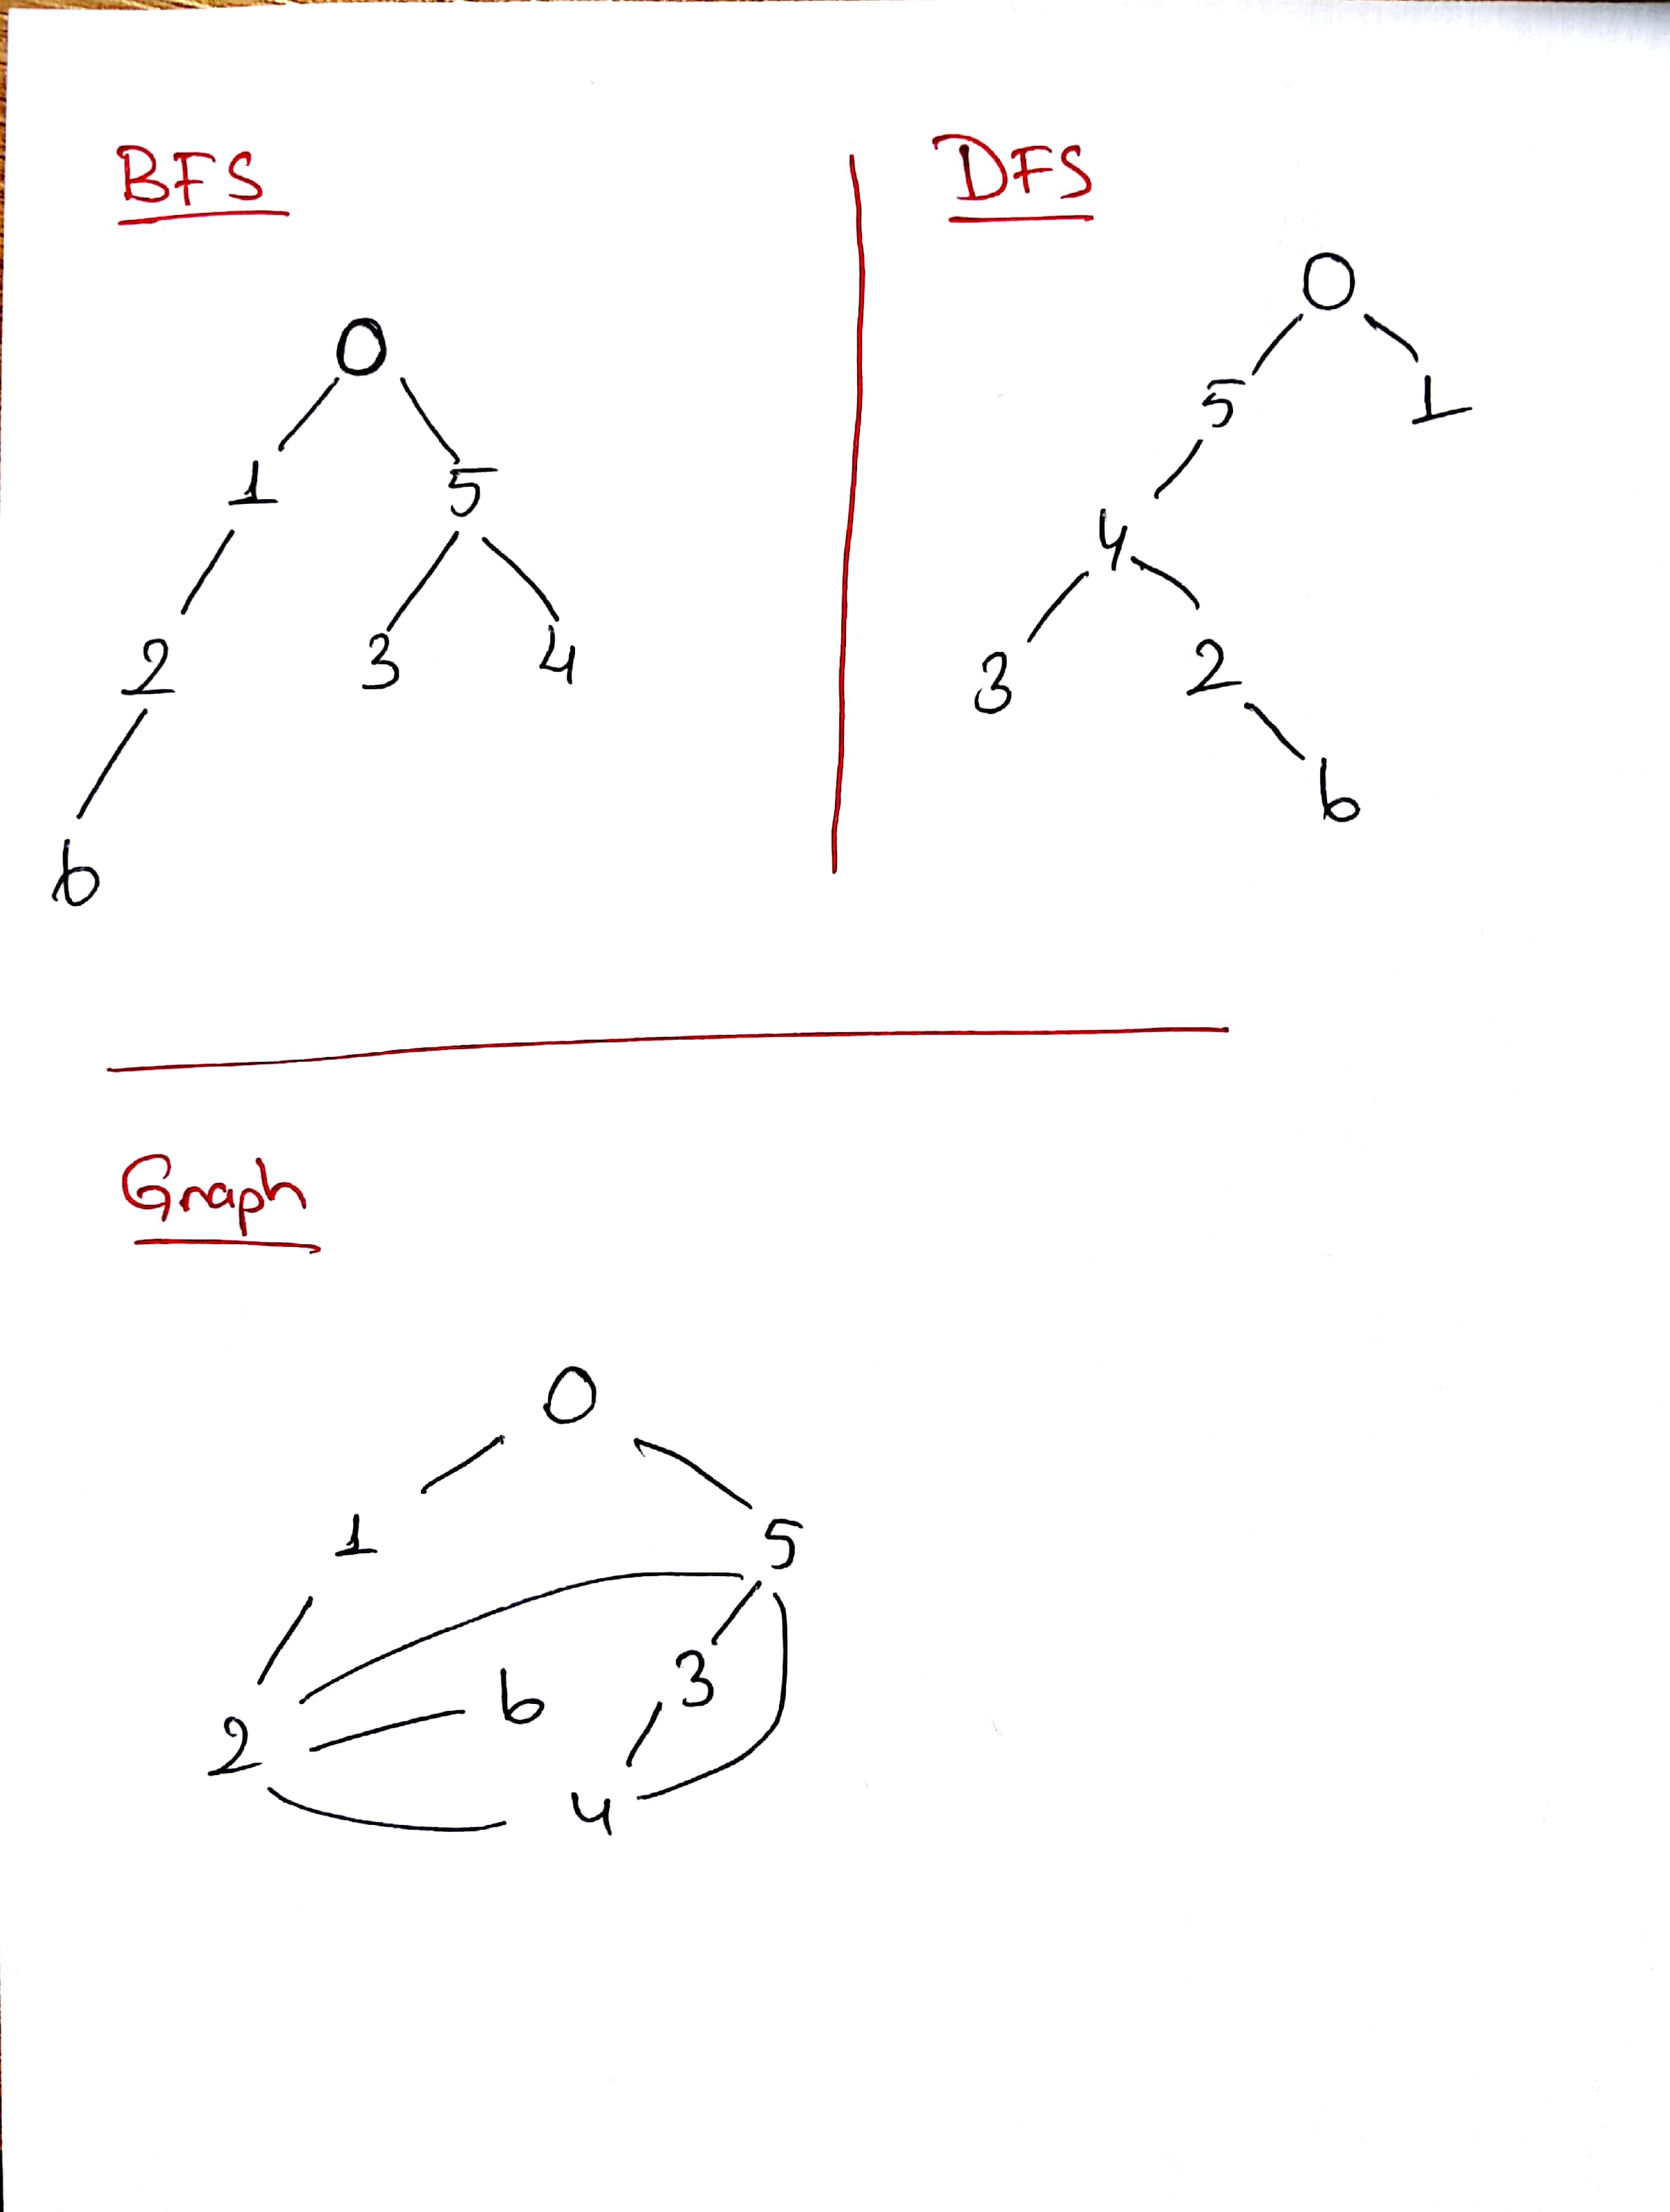 BFS
0
1 5
2 3 4
6
DFS
0
5 1
4
3 2
6
Graph
0
1 5
2 6 3
4